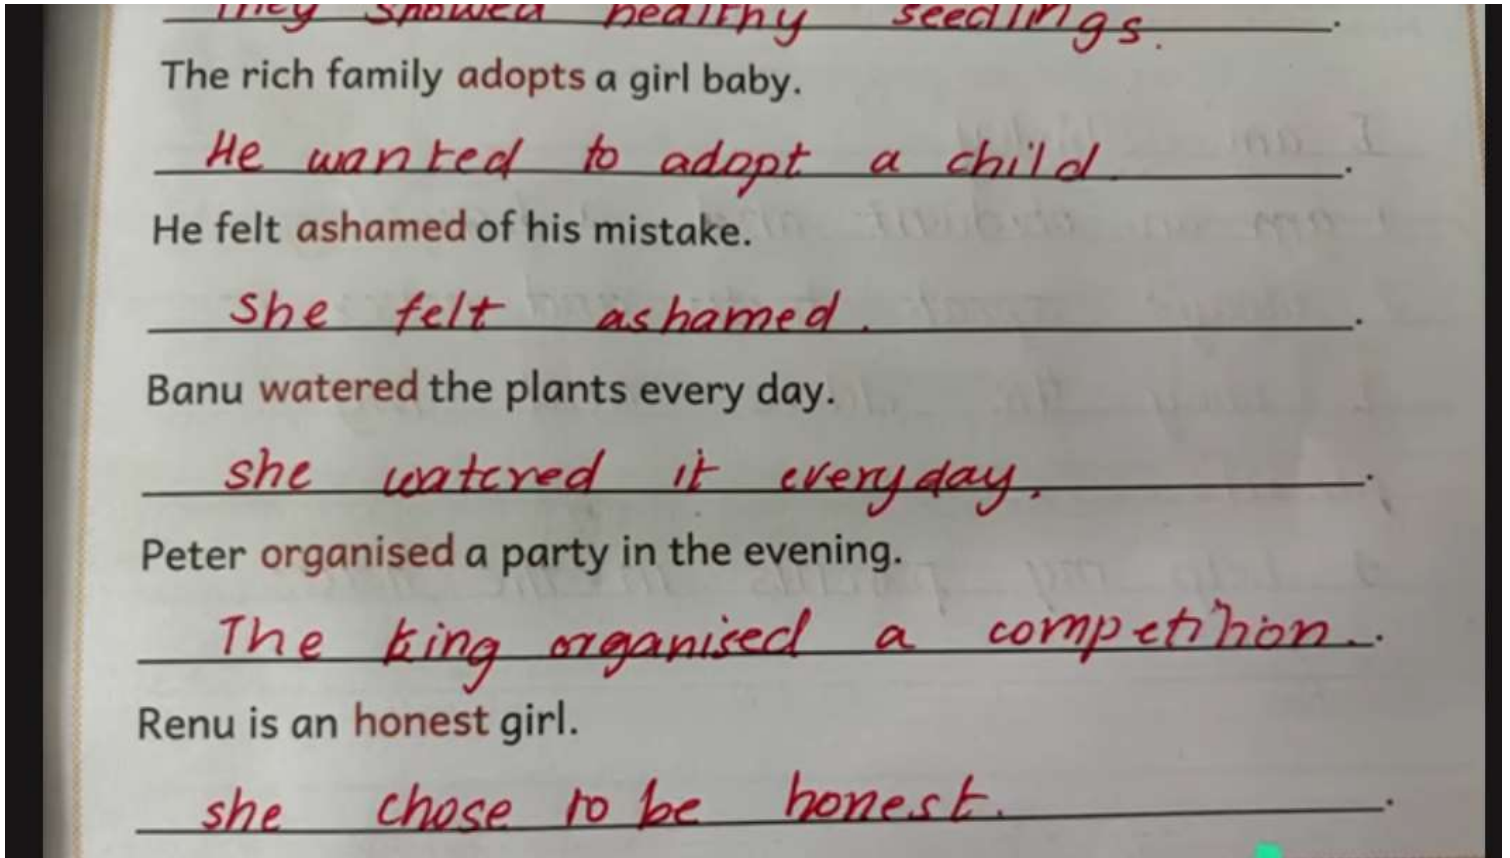 They showed healthy seedlings.
The rich family adopts a girl baby.
He wanted to adopt a child.
He felt ashamed of his mistake.
She felt ashamed.
Banu watered the plants every day.
she watered it everyday.
Peter organised a party in the evening.
The king organised a competition.
Renu is an honest girl.
she chose to be honest.